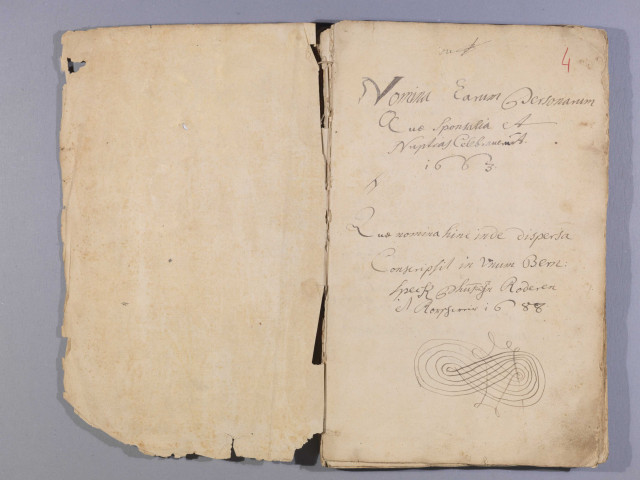 4
Nomina Earum Personarum
Quae Sponsalia et
Nuptias Celebrarunt.
1663.
Quae nomina hinc inde dispersa
Conscripsit in Vnum Bern:
Roderen
1688